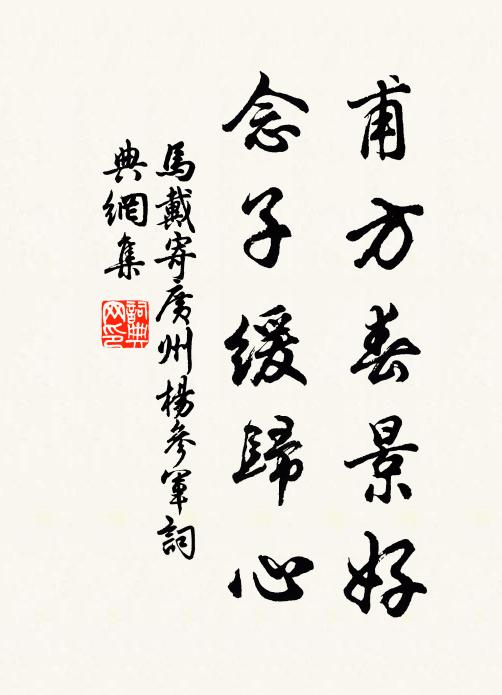 甫方春景好
念子緩歸心
馬戴寄廣州楊參軍詞
典網集
詞典
网印